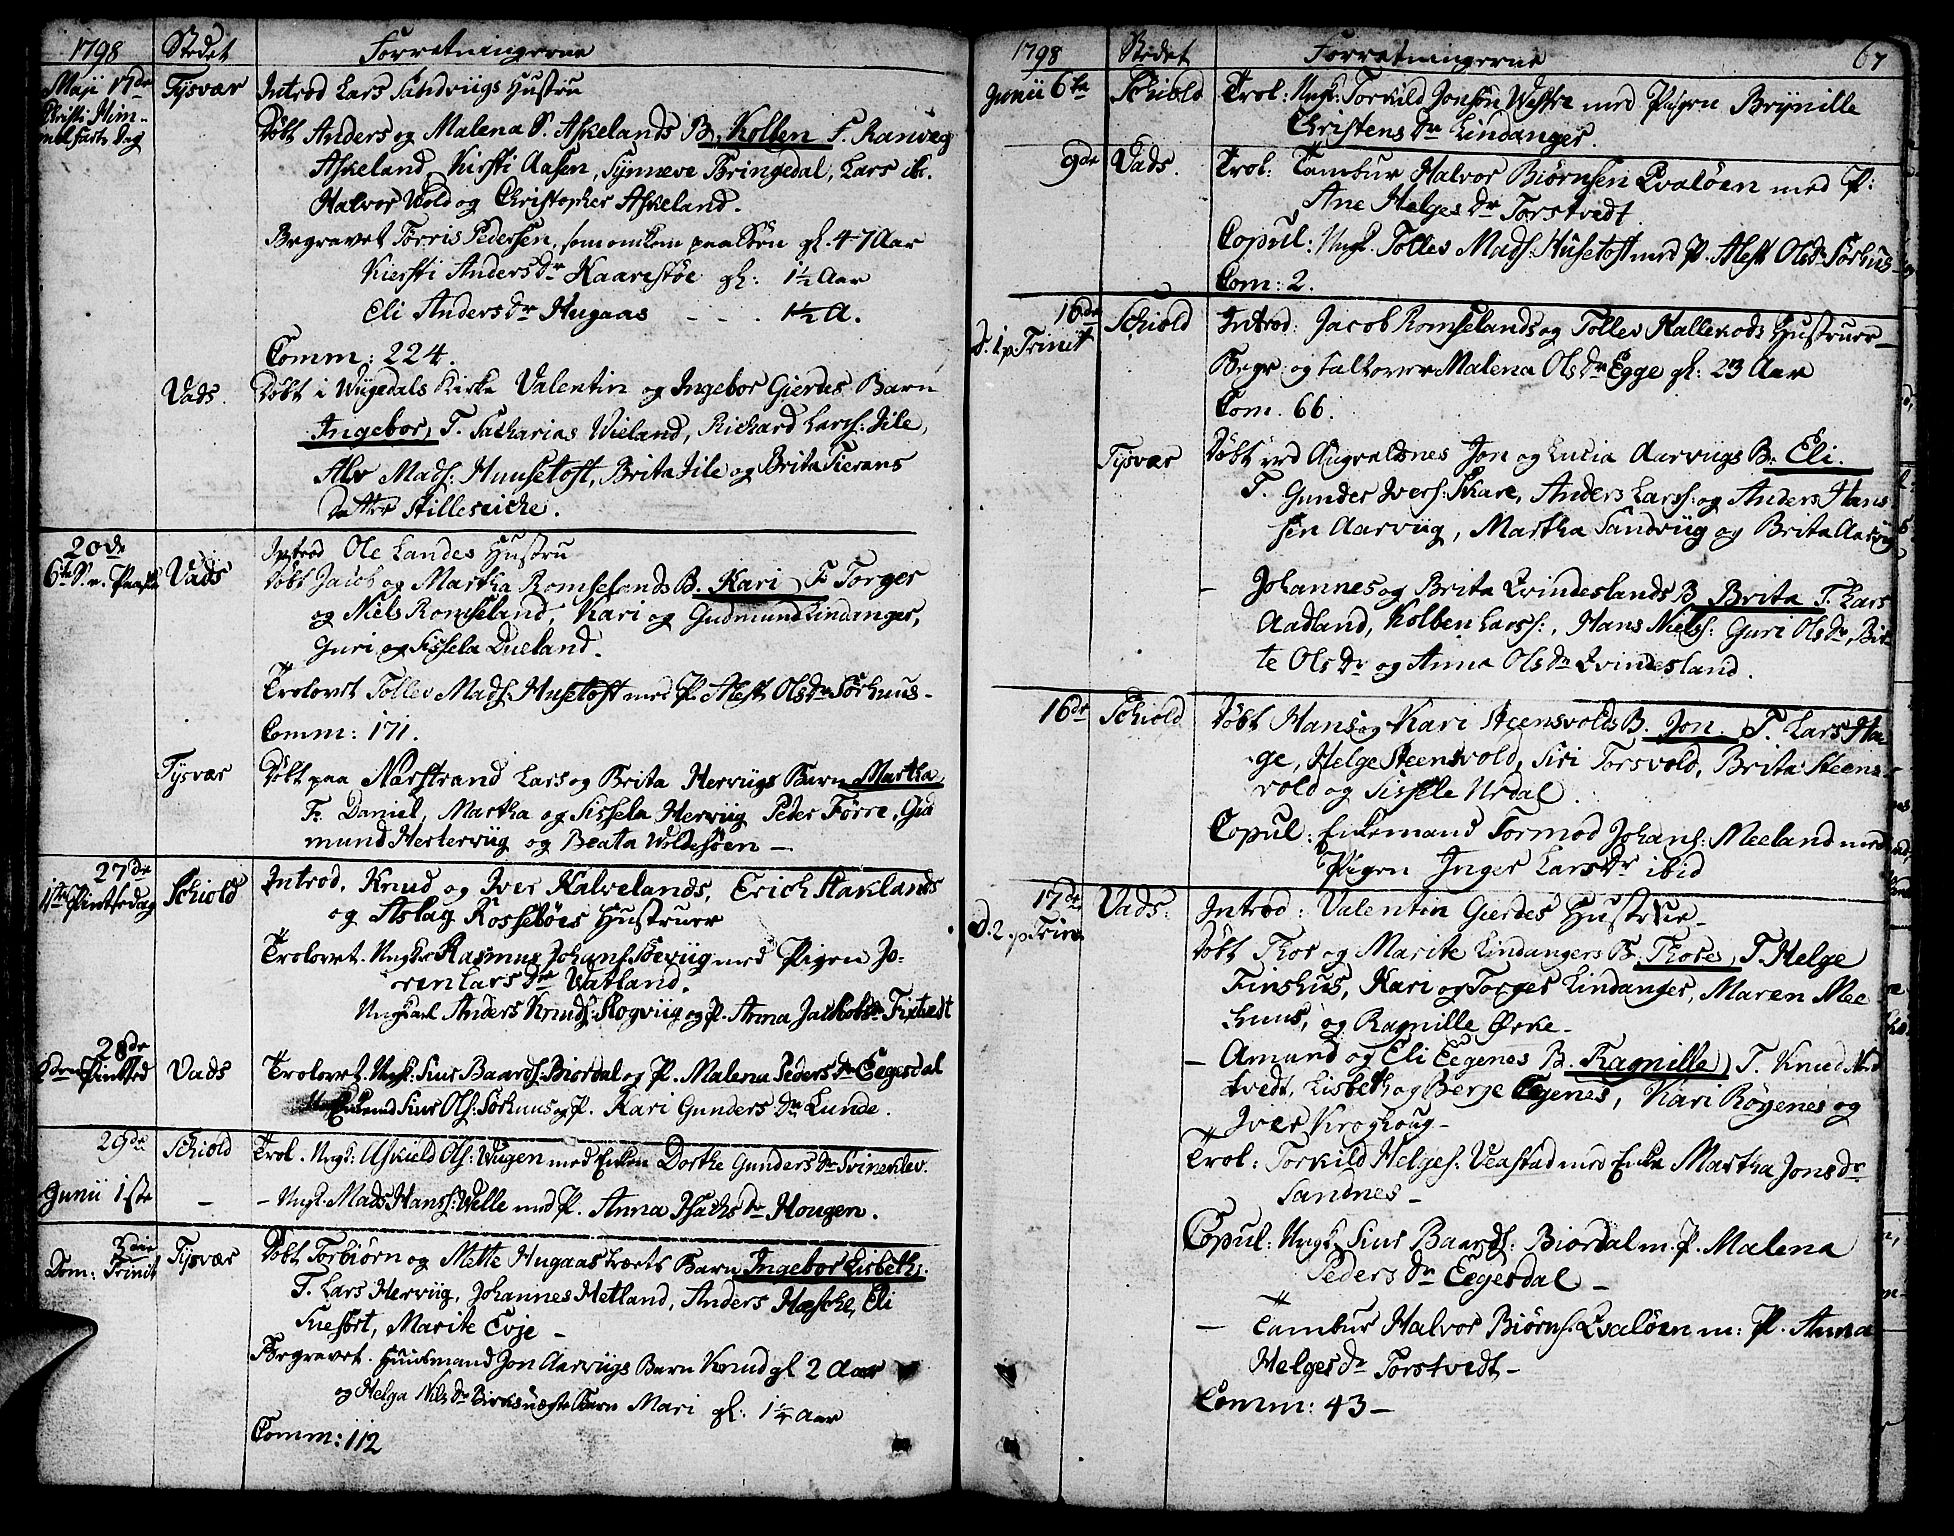 1798 Stedet Forretningerne
Maji 17de Tysvær Introd Lars Sandviigs Hustru
Christi Him-
melfarts Dag Døbt Anders og Malena S. Askelands B. Kolben F. Ranveg
Askeland, Kirsti Aasen, Synneve Bringedal, Lars ib.
Halvor Wold og Christopher Askeland.
Begravet Torris Pedersen, som omkom paa Søen gl. 47 Aar
Kiersti Anders Dr Kaarestøe gl: 1½ Aar
Eli Anders Dr Hugaas - - . 1½ A.
Comm: 224.
Vads. Døbt i Wiigedals Kirke Valentin og Ingebor Gierdes Barn
Ingebor, T. Sacharias Wieland, Richard Larss: Iile,
Alv Mads: Huusetoft, Brita Iile og Brita Tierans
Datter Stillesiche.
20de Introd Ole Landes Hustru
6te S. e. Paaske Vads Døbt Jacob og Martha Romselands B. Kari F. Torger
og Niels Romseland, Kari og Gudmund Lindanger,
Guri og Sissela Dueland.
Trolovet Tollev Mads: Husetoft med P. Alest Ols Dr Sørhuus-
Comm: 171.
Tysvær Døbt paa Narstrand Lars og Brita Herviigs Barn Martha
F. Daniel, Martha og Sissela Herviig Peter Førre, Gud
mund Hertervig og Beata Woldesøen -
27de Introd. Knud og Iver Halvelands, Erich Staklands
1ste Pintsedag Schiold og Aslag Rossebøes Hustruer
Trolovet. Ungk. Rasmus Johans: Berviig med Pigen Jo-
ren Lars Dr Vatland.
Ungkarl Anders Knuds: Skogviig og P. Anna Jachobs Dr Tixtvedt
28de
2den Pintsed Vads Trolovet. Ungk: Sius Baards: Biordal og P. Malena Peders Dr Eegesdal
Enkemd Sius Ols: Sørhuus og P. Kari Gunders Dr Lunde.
29de Schiold Trol. Ungk: Askield Ols: Wiigen med Enken Dorthe Gunders Dr Svineklev.
Junii 1ste - - Ungk. Mads Hanss: Welle med P. Anna Isachs Dr Hougen.
3die
Dom: Trinit Tysvær Døbt Torbiørn og Mette Hugaas træets Barn Ingebor Lisbeth.
T. Lars Herviig, Johannes Hetland, Anders Hæsche, Eli
Suesort, Marite Evje -
Begravet. Huusmand Jon Aarviigs Barn Knud gl 2 Aar
og Helga Nils Dr Birks uægte Barn Mari gl: 1¼ Aar
Comm: 112
1798 Stedet Forretningerne 67
Junii 6te Schiold Trol: Ungk: Torkild Jonsen Westre med Pigen Brynille
Christens Dr Lindanger.
9de Vads. Trol: Tambur Halvor Biørnsen Qvaløen med P:
Ane Helges Dr Torstvedt
Copul: Ungk. Tollev Mads: Husetoft med P. Alest Ols Dr Sørhus
Com: 2.
10de Schiold Introd: Jacob Romselands og Tollev Hallekods Hustruer-
d. 1 p Trinit Begr: og talt over Malena Ols Dr Egge gl: 23 Aar
Com. 66.
Tysvær Døbt ved Augvaldsnes Jon og Lucia Aarviigs B: Eli.
T. Gunder Ivers: Skare, Anders Larss: og Anders Hans
sen Aarviig, Martha Sandviig og Brita Aarviig
- Johannes og Brita Qvindeslands B. Brita T. Lars
Aadland, Kolben Larss:, Hans Niels: Guri Ols Dr, Bri
te Ols Dr og Anna Ols Dr Qvindesland.
16de Schiold Døbt Hans og Kari Steensvolds B. Jon. T. Lars Ha
ge, Helge Steensvold, Siri Torsvold, Brita Steens
vold og Sissele Urdal.
Copul: Enkemand Tormod Johans: Meeland med
Pigen Inger Lars Dr ibid
17de Vads: Introd: Valentin Gierdes Hustrue-
d. 2. p Trin Døbt Thor og Marite Lindangers B. Thores, T. Helge
Finshus, Kari og Torger Lindanger, Maren Mee
huus, og Ragnille Ørke-
- Amund og Eli Eegenes B. Ragnille, T. Knud Ned
tvedt, Lisbeth og Berge Egenes, Kari Røyenes og
Iver Kroghoug-
Trol: Torkild Helges: Veastad med Enke Martha Jons Dr
Sandnes-
Copul: Ungk. Sius Baards: Biordal m. P. Malena
Peders Dr Eegesdal -
- Tambur Halvor Biørns: Qvaløen m: P. Anna
Helges Dr Torstvedt-
Comm: 43-